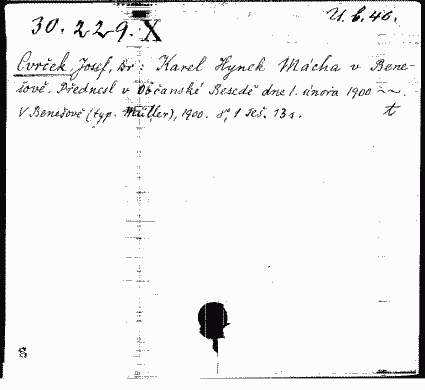 30.229.X
U.b.46.
Cvrček, Josef, Dr: Karel Hynek Mácha v Bene-
šově. Přednesl v Občanské Besedě dne 1. února 1900 ~~.
V Benešově (typ. Müller), 1900. 8°, 1 seš. 13 s. t
8